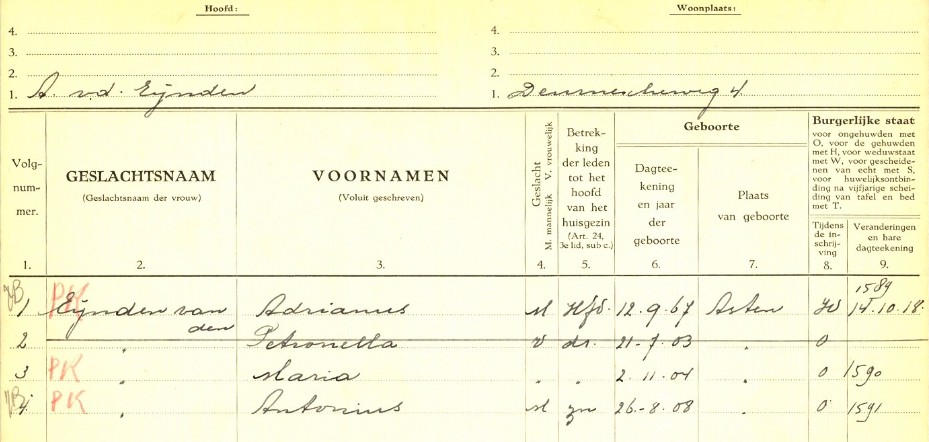 Hoofd: Woonplaats:
4. 4.
3. 3.
2. 2.
1. A. v.d. Eijnden 1. Deurnescheweg 4.
Volg-
num-
mer.
1.
GESLACHTSNAAM
(Geslachtsnaam der vrouw)
2.
VOORNAMEN
(Voluit geschreven)
3.
Geslacht
M. mannelijk V. vrouwelijk
4.
Betrek-
king
der leden
tot het
hoofd
van het
huisgezin
(Art. 24,
3e lid, sub c.)
5.
Geboorte
Dagtee-
kening
en jaar
der
geboorte
6.
Plaats
van geboorte
7.
Burgerlijke staat
voor ongehuwden met
O, voor de gehuwden
met H, voor weduwstaat
met W, voor gescheide-
nen van echt met S,
voor huwelijksontbin-
ding na vijfjarige schei-
ding van tafel en bed
met T.
Tijdens
de in-
schrij-
ving
8.
Veranderingen
en hare
dagteekening
9.
1589
1 PK Eijnden van Adrianus M Hfd. 12.9.67 Asten W 14.10.18.
den
2 " Petronella V dr. 21-7-03 " O
3 PK " Maria " " 2-11-04 " O 1590
4. PK " Antonius M zn 26-8-08 " O 1591